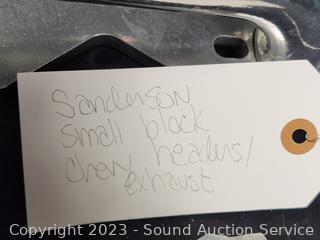 Sanderson
small block
chevy headers/
exhaust
Copyright © 2023 - Sound Auction Service